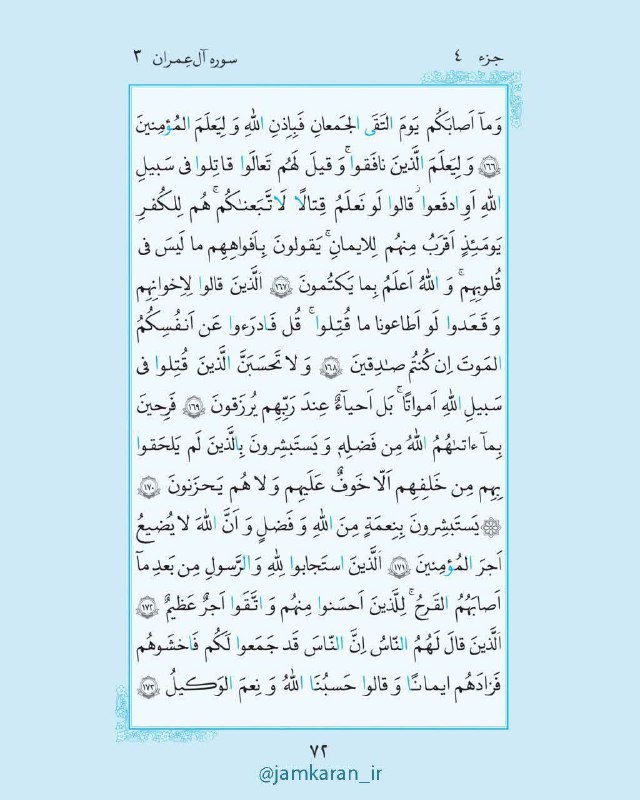 جزء ٤
سوره آل‌عِمران ٣
وَمآ اَصابَكُم يَومَ التَقَى الجَمعانِ فَبِاِذنِ اللهِ وَ لِيَعلَمَ المُؤمِنينَ
﴿١٦٦﴾ وَ لِيَعلَمَ الَّذينَ نافَقوا ۚ وَ قيلَ لَهُم تَعالَوا قاتِلوا فى سَبيلِ
اللهِ اَوِ ادفَعوا ۖ قالوا لَو نَعلَمُ قِتالًا لَاتَّبَعنٰكُم ۗ هُم لِلكُفرِ
يَومَئِذٍ اَقرَبُ مِنهُم لِلايمانِ ۚ يَقولونَ بِاَفواهِهِم ما لَيسَ فى
قُلوبِهِم ۗ وَ اللهُ اَعلَمُ بِما يَكتُمونَ ﴿١٦٧﴾ اَلَّذينَ قالوا لِاِخوانِهِم
وَ قَعَدوا لَو اَطاعونا ما قُتِلوا ۗ قُل فَادرَءوا عَن اَنفُسِكُمُ
المَوتَ اِن كُنتُم صٰدِقينَ ﴿١٦٨﴾ وَ لا تَحسَبَنَّ الَّذينَ قُتِلوا فى
سَبيلِ اللهِ اَمواتًا ۚ بَل اَحيآءٌ عِندَ رَبِّهِم يُرزَقونَ ﴿١٦٩﴾ فَرِحينَ
بِمآ ءاتىٰهُمُ اللهُ مِن فَضلِهٖ وَ يَستَبشِرونَ بِالَّذينَ لَم يَلحَقوا
بِهِم مِن خَلفِهِم اَلّا خَوفٌ عَلَيهِم وَ لا هُم يَحزَنونَ ﴿١٧٠﴾
۞ يَستَبشِرونَ بِنِعمَةٍ مِنَ اللهِ وَ فَضلٍ وَ اَنَّ اللهَ لا يُضيعُ
اَجرَ المُؤمِنينَ ﴿١٧١﴾ اَلَّذينَ استَجابوا لِلّهِ وَ الرَّسولِ مِن بَعدِ مآ
اَصابَهُمُ القَرحُ ۚ لِلَّذينَ اَحسَنوا مِنهُم وَ اتَّقَوا اَجرٌ عَظيمٌ ﴿١٧٢﴾
اَلَّذينَ قالَ لَهُمُ النّاسُ اِنَّ النّاسَ قَد جَمَعوا لَكُم فَاخشَوهُم
فَزادَهُم ايمانًا وَ قالوا حَسبُنَا اللهُ وَ نِعمَ الوَكيلُ ﴿١٧٣﴾
٧٢
@jamkaran_ir